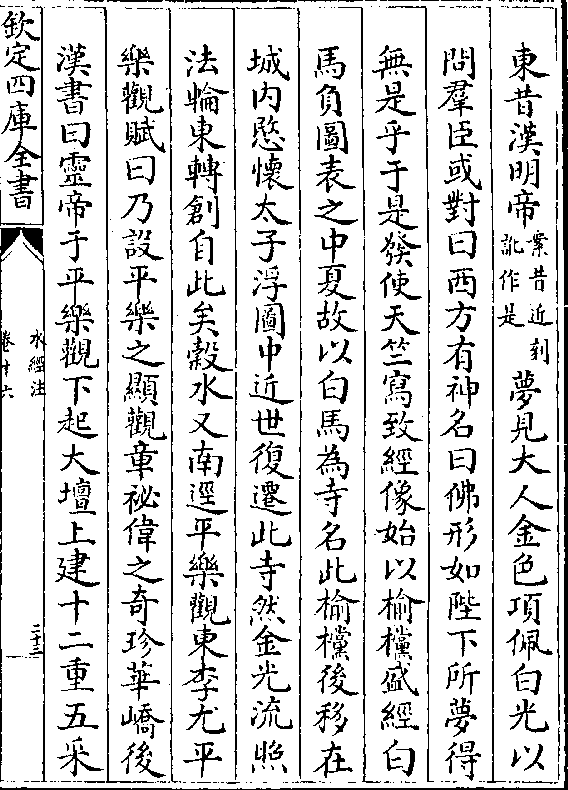 東昔漢明帝案昔近刻訛作是夢見大人金色項佩白光以
問羣臣或對曰西方有神名曰佛形如陛下所夢得
無是乎于是發使天竺寫致經像始以榆欓盛經白
馬負圖表之中夏故以白馬為寺名此榆欓後移在
城内愍懷太子浮圖中近世復遷此寺然金光流照
法輪東轉創自此矣穀水又南逕平樂觀東李尤平
樂觀賦曰乃設平樂之顯觀章祕偉之奇珍華嶠後
漢書曰靈帝于平樂觀下起大壇上建十二重五采
欽定四庫全書
水經注
卷十六
二十三